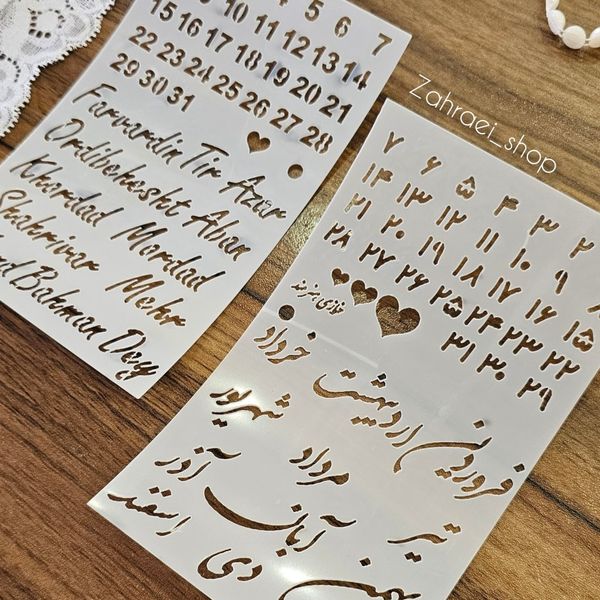 4 5 6 7
9 10 11 12 13 14
15 16 17 18 19 20 21
22 23 24 25 26 27 28
29 30 31
Farvardin Tir Azar
Ordibehesht Aban
Khordad Mordad
Shahrivar Mehr
Bahman Dey
Zahraei_shop
۲ ۳ ۴ ۵ ۶ ۷
۹ ۱۰ ۱۱ ۱۲ ۱۳ ۱۴
۱۵ ۱۶ ۱۷ ۱۸ ۱۹ ۲۰ ۲۱
۲۲ ۲۳ ۲۴ ۲۵ ۲۶ ۲۷ ۲۸
۲۹ ۳۰ ۳۱
فروردین اردیبهشت خرداد
تیر مرداد شهریور
آبان آذر
بهمن دی اسفند